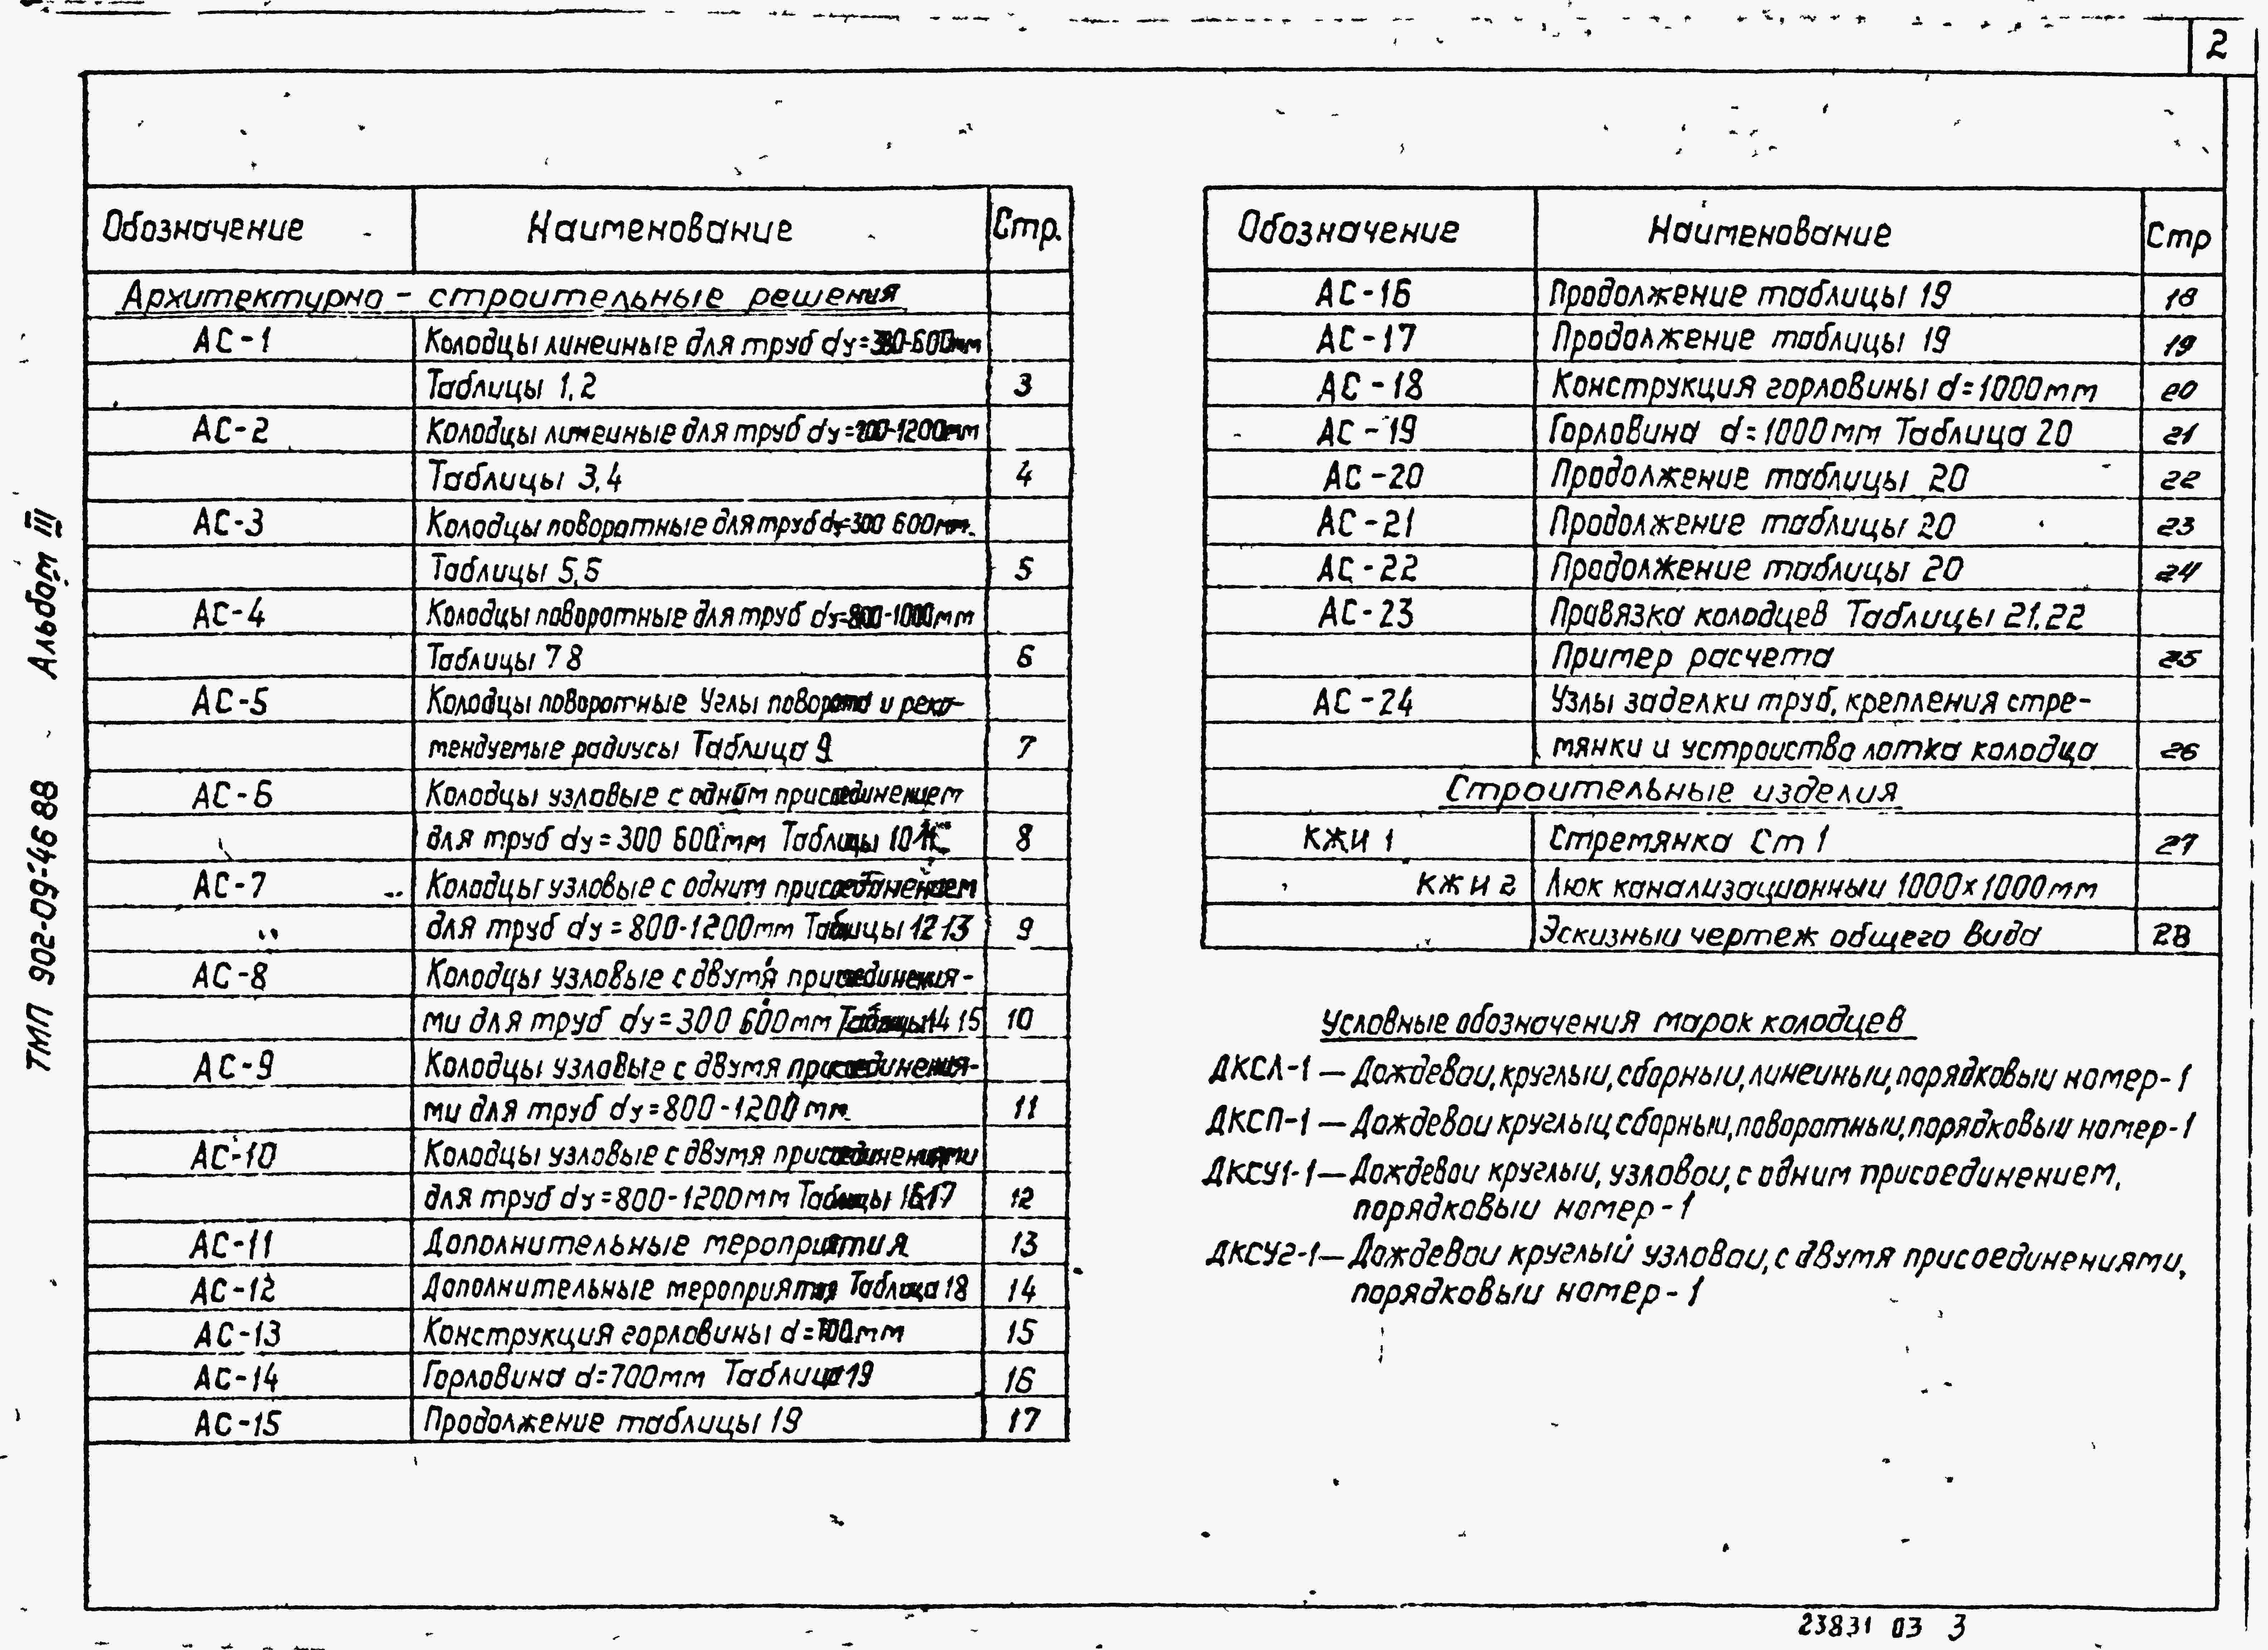 2
Обозначение Наименование Стр.
Архитектурно - строительные решения
АС-1 Колодцы линейные для труб dу=300-600мм
Таблицы 1,2 3
АС-2 Колодцы линейные для труб dу=200-1200мм
Таблицы 3,4 4
АС-3 Колодцы поворотные для труб dу=300 600мм.
Таблицы 5,6 5
АС-4 Колодцы поворотные для труб dу=800-1000мм
Таблицы 7 8 6
АС-5 Колодцы поворотные Углы поворота и реко-
мендуемые радиусы Таблица 9 7
АС-6 Колодцы узловые с одним присоединением
для труб dу=300 600мм Таблицы 10 8
АС-7 Колодцы узловые с одним присоединением
для труб dу=800-1200мм Таблицы 12 13 9
АС-8 Колодцы узловые с двумя присоединения-
ми для труб dу=300 600мм Таблицы 14 15 10
АС-9 Колодцы узловые с двумя присоединения-
ми для труб dу=800-1200мм 11
АС-10 Колодцы узловые с двумя присоединениями
для труб dу=800-1200мм Таблицы 16 17 12
АС-11 Дополнительные мероприятия 13
АС-12 Дополнительные мероприятия Таблица 18 14
АС-13 Конструкция горловины d=700мм 15
АС-14 Горловина d=700мм Таблица 19 16
АС-15 Продолжение таблицы 19 17
Обозначение Наименование Стр
АС-16 Продолжение таблицы 19 18
АС-17 Продолжение таблицы 19 19
АС-18 Конструкция горловины d=1000мм 20
АС-19 Горловина d=1000мм Таблица 20 21
АС-20 Продолжение таблицы 20 22
АС-21 Продолжение таблицы 20 23
АС-22 Продолжение таблицы 20 24
АС-23 Правязка колодцев Таблицы 21.22
Пример расчета 25
АС-24 Узлы заделки труб, крепления стре-
мянки и устройства лотка колодца 26
Строительные изделия
КЖИ 1 Стремянка Ст 1 27
КЖИ 2 Люк канализационный 1000х1000мм
Эскизный чертеж общего вида 28
Условные обозначения марок колодцев
ДКСЛ-1 — Дождевой, круглый, сборный, линейный, порядковый номер-1
ДКСП-1 — Дождевой круглый, сборный, поворотный, порядковый номер-1
ДКСУ1-1 — Дождевой круглый, узловой, с одним присоединением,
порядковый номер-1
ДКСУ2-1 — Дождевой круглый узловой, с двумя присоединениями,
порядковый номер-1
ТМП 902-09-46 88 Альбом III
23831 03 3